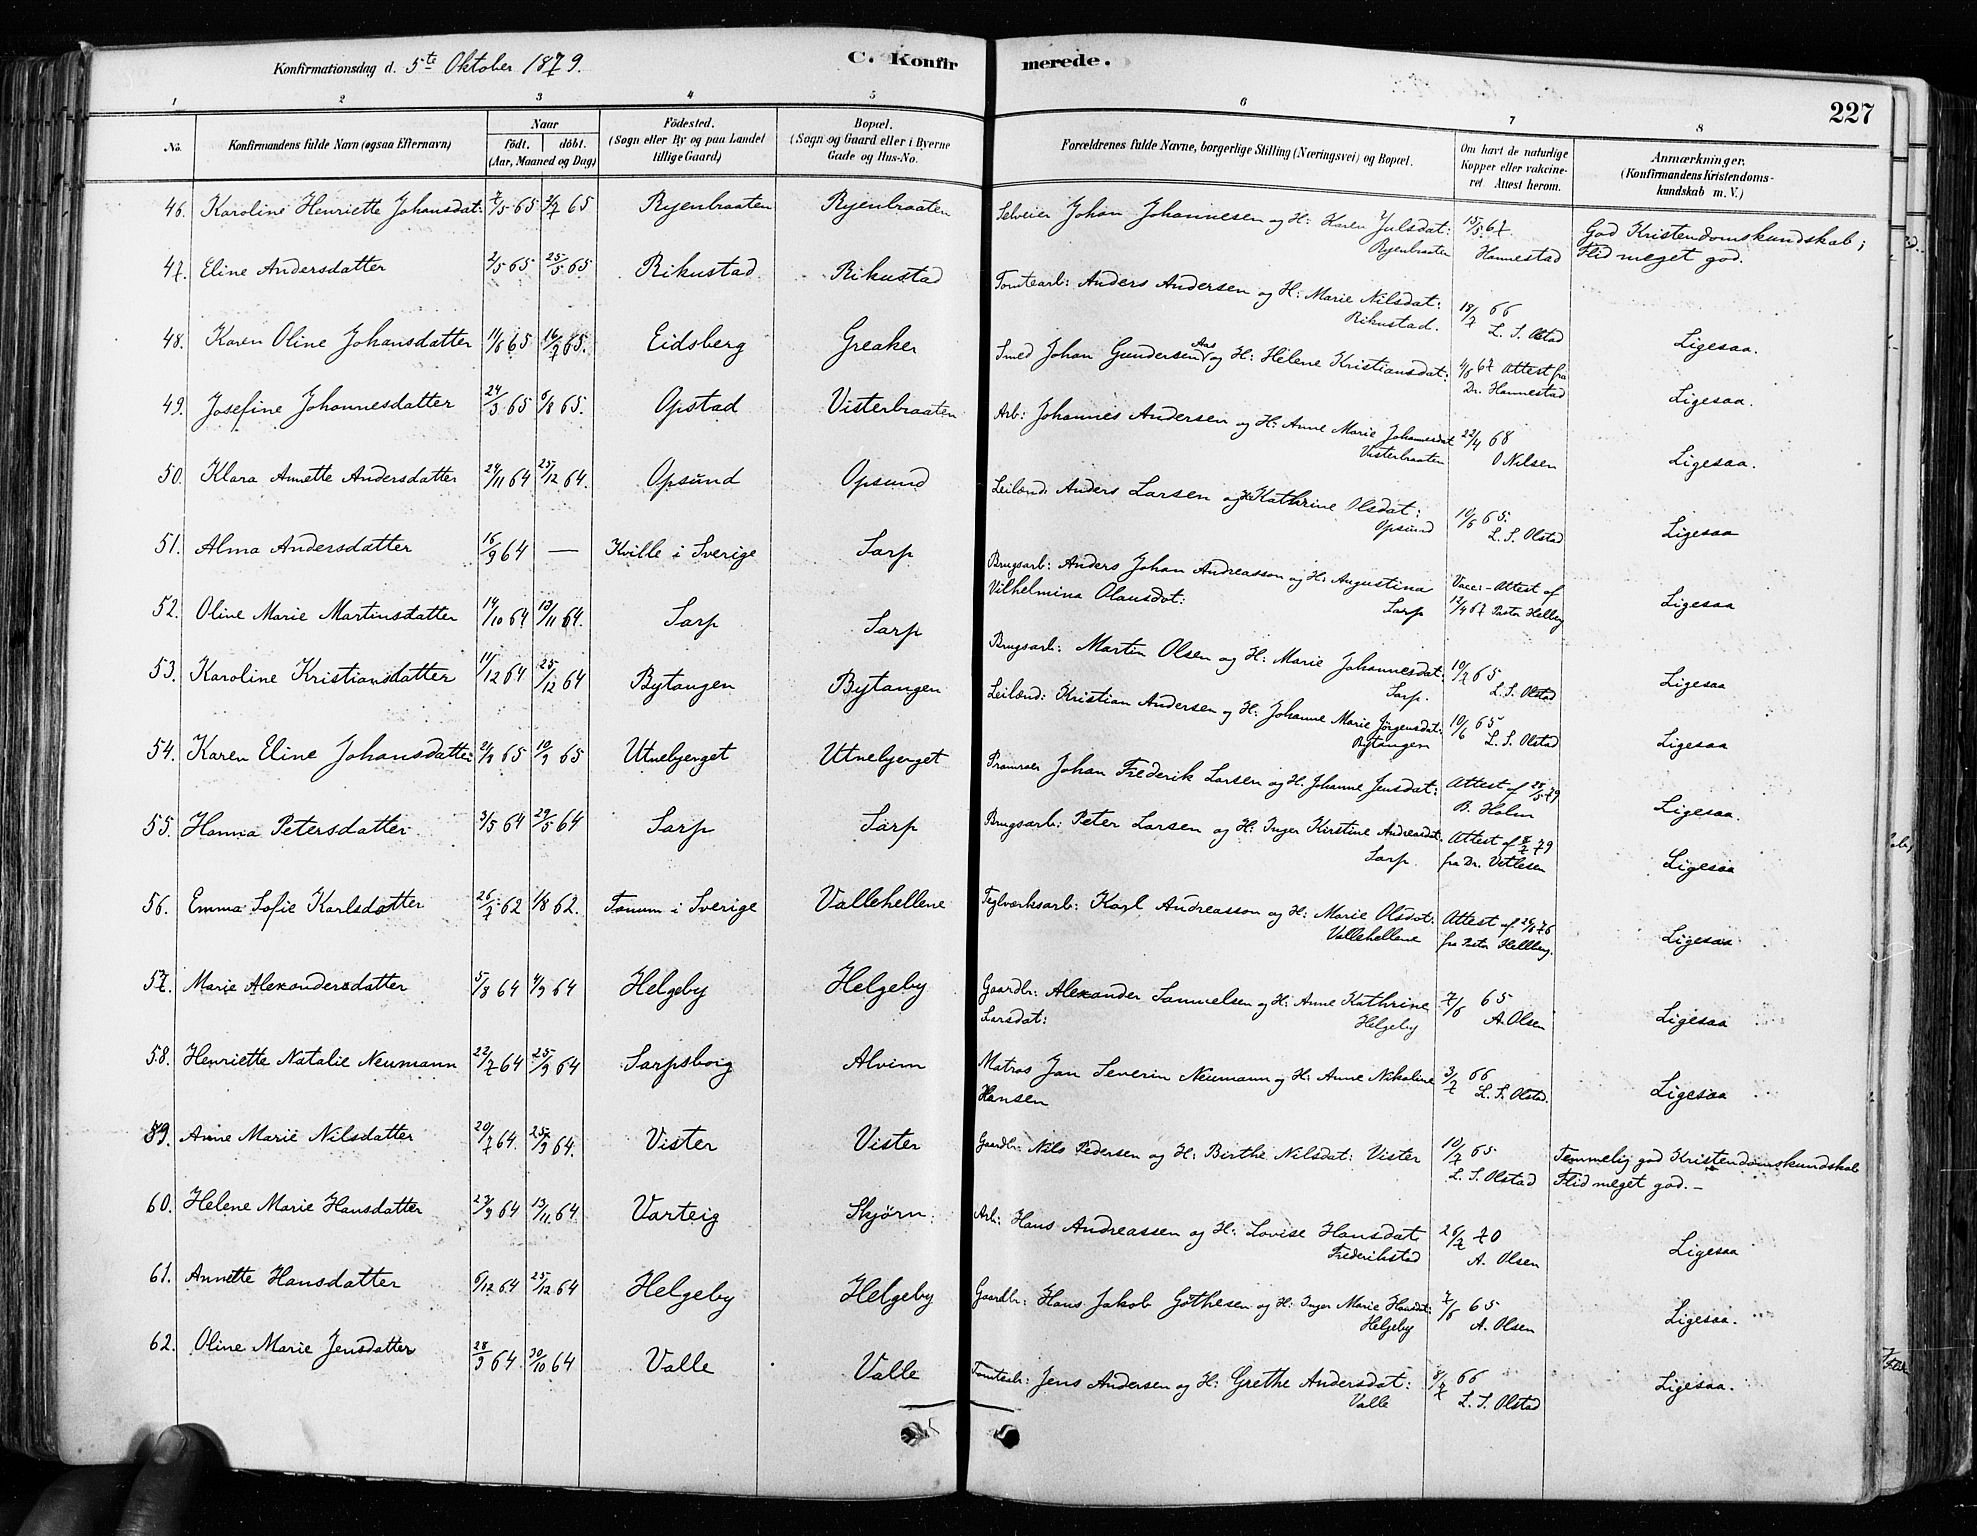 Konfirmationsdag d. 5te Oktober 1879.
C. Konfirmerede.
227
1 2 3 4 5 6 7 8
No.
Konfirmandens fulde Navn (ogsaa Efternavn)
Naar
født. døbt.
(Aar, Maaned og Dag)
Fødested.
(Sogn eller By og paa Landet tillige Gaard)
Bopæl.
(Sogn og Gaard eller i Byerne Gade og Hus-No.
Forældrenes fulde Navne, borgerlige Stilling (Næringsvei) og Bopæl.
Om havt de naturlige Kopper eller vakcineret Attest herom.
Anmærkninger.
(Konfirmandens Kristendomskundskab m. V.)
46. Karoline Henriette Johansdat: 7/5 65 2/7 65 Ryenbraaten Ryenbraaten Selveier Johan Johannesen og H: Karen Julsdat: Ryenbraaten 15/5 67. Hannestad God Kristendomskundskab; Flid meget god.
47. Eline Andersdatter 2/5 65 25/5 65 Rikustad Rikustad Tomtearb: Anders Andersen og H: Marie Nilsdat: Rikustad. 18/7 66 L. S. Olstad Ligesaa.
48. Karen Oline Johansdatter 11/6 65 16/7 65. Eidsberg Greaker Smed Johan Gundersen Aas og H: Helene Kristiansdat: 4/8 67 Attest fra Dr. Hannestad Ligesaa.
49. Josefine Johannesdatter 24/3 65 6/8 65. Opstad Visterbraaten Arb: Johannes Andersen og H: Anne Marie Johannesdat Visterbraaten 22/4 68 O Nilsen Ligesaa.
50. Klara Annette Andersdatter 24/11 64 25/12 64. Opsund Opsund Leilænd: Anders Larsen og H: Kathrine Olsdat: Opsund 10/6 65. L. S. Olstad Ligesaa
51. Alma Andersdatter 16/9 64 — Kville i Sverige Sarp Brugsarb: Anders Johan Andreasson og H: Augustina Vilhelmina Olausdot: Sarp Vacc:-Attest af 12/4 67 Pastor Hellberg Ligesaa
52. Oline Marie Martinsdatter 14/10 64 13/11 64. Sarp Sarp Brugsarb: Martin Olsen og H: Marie Johannesdat: Sarp. 10/7 65 L. S. Olstad Ligesaa
53. Karoline Kristiansdatter 11/12 64 25/12 64 Bytangen Bytangen Leilænd: Kristian Andersen og H: Johanne Marie Jørgensdat: Bytangen 10/6 65 L. S. Olstad Ligesaa
54. Karen Eline Johansdatter 65 10/9 65 Utnebjerget Utnebjerget Pramroer Johan Frederik Larsen og H: Johanne Jensdat: Attest af 28/5 79 B. Holm Ligesaa.
55. Hanna Petersdatter 3/5 64 29/5 64 Sarp Sarp Brugsarb: Peter Larsen og H: Inger Kirstine Andreasdat: Sarp. Attest af 8/7 79 fra Dr. Vetlesen Ligesaa
56. Emma Sofie Karlsdatter 26/7 62 1/8 62. Tanum i Sverige Vallehellene Teglværksarb: Karl Andreasson og H: Marie Olsdot: Vallehellene Attest af 76 fra Pastor Hellberg. Ligesaa
57. Marie Alexandersdatter 5/8 64 4/9 64 Helgeby Helgeby Gaardbr: Alexander Samuelsen og H: Anne Kathrine Larsdat: Helgeby 7/6 65 A. Olsen Ligesaa
58. Henriette Natalie Neumann 22/7 64 25/9 64 Sarpsborg Alvim Matros Jan Severin Neumann og H: Anne Nikoline Hansen 3/7 66 L. S. Olstad. Ligesaa
59. Anne Marie Nilsdatter 20/7 64. 25/9 64. Vister Vister Gaardbr: Nils Pedersen og H: Birthe Nilsdat: Vister 10/7 65 L. S. Olstad Temmelig god Kristendomskundskab Flid meget god.—
60. Helene Marie Hansdatter 27/9 64 13/11 64. Varteig Skjørn. Arb: Hans Andreassen og H: Lovise Hansdat: Frederikstad 26/7 70 A. Olsen Ligesaa
61. Annette Hansdatter 6/12 64 25/12 64 Helgeby Helgeby Gaardbr: Hans Jakob Gøthesen og H: Inger Marie Hansdat: Helgeby 7/6 65 A. Olsen Ligesaa.
62. Oline Marie Jensdatter 28/9 64. 30/10 64 Valle Valle Tomtearb: Jens Andersen og H: Grethe Andersdat: Valle 8/7 66 L. S. Olstad Ligesaa.